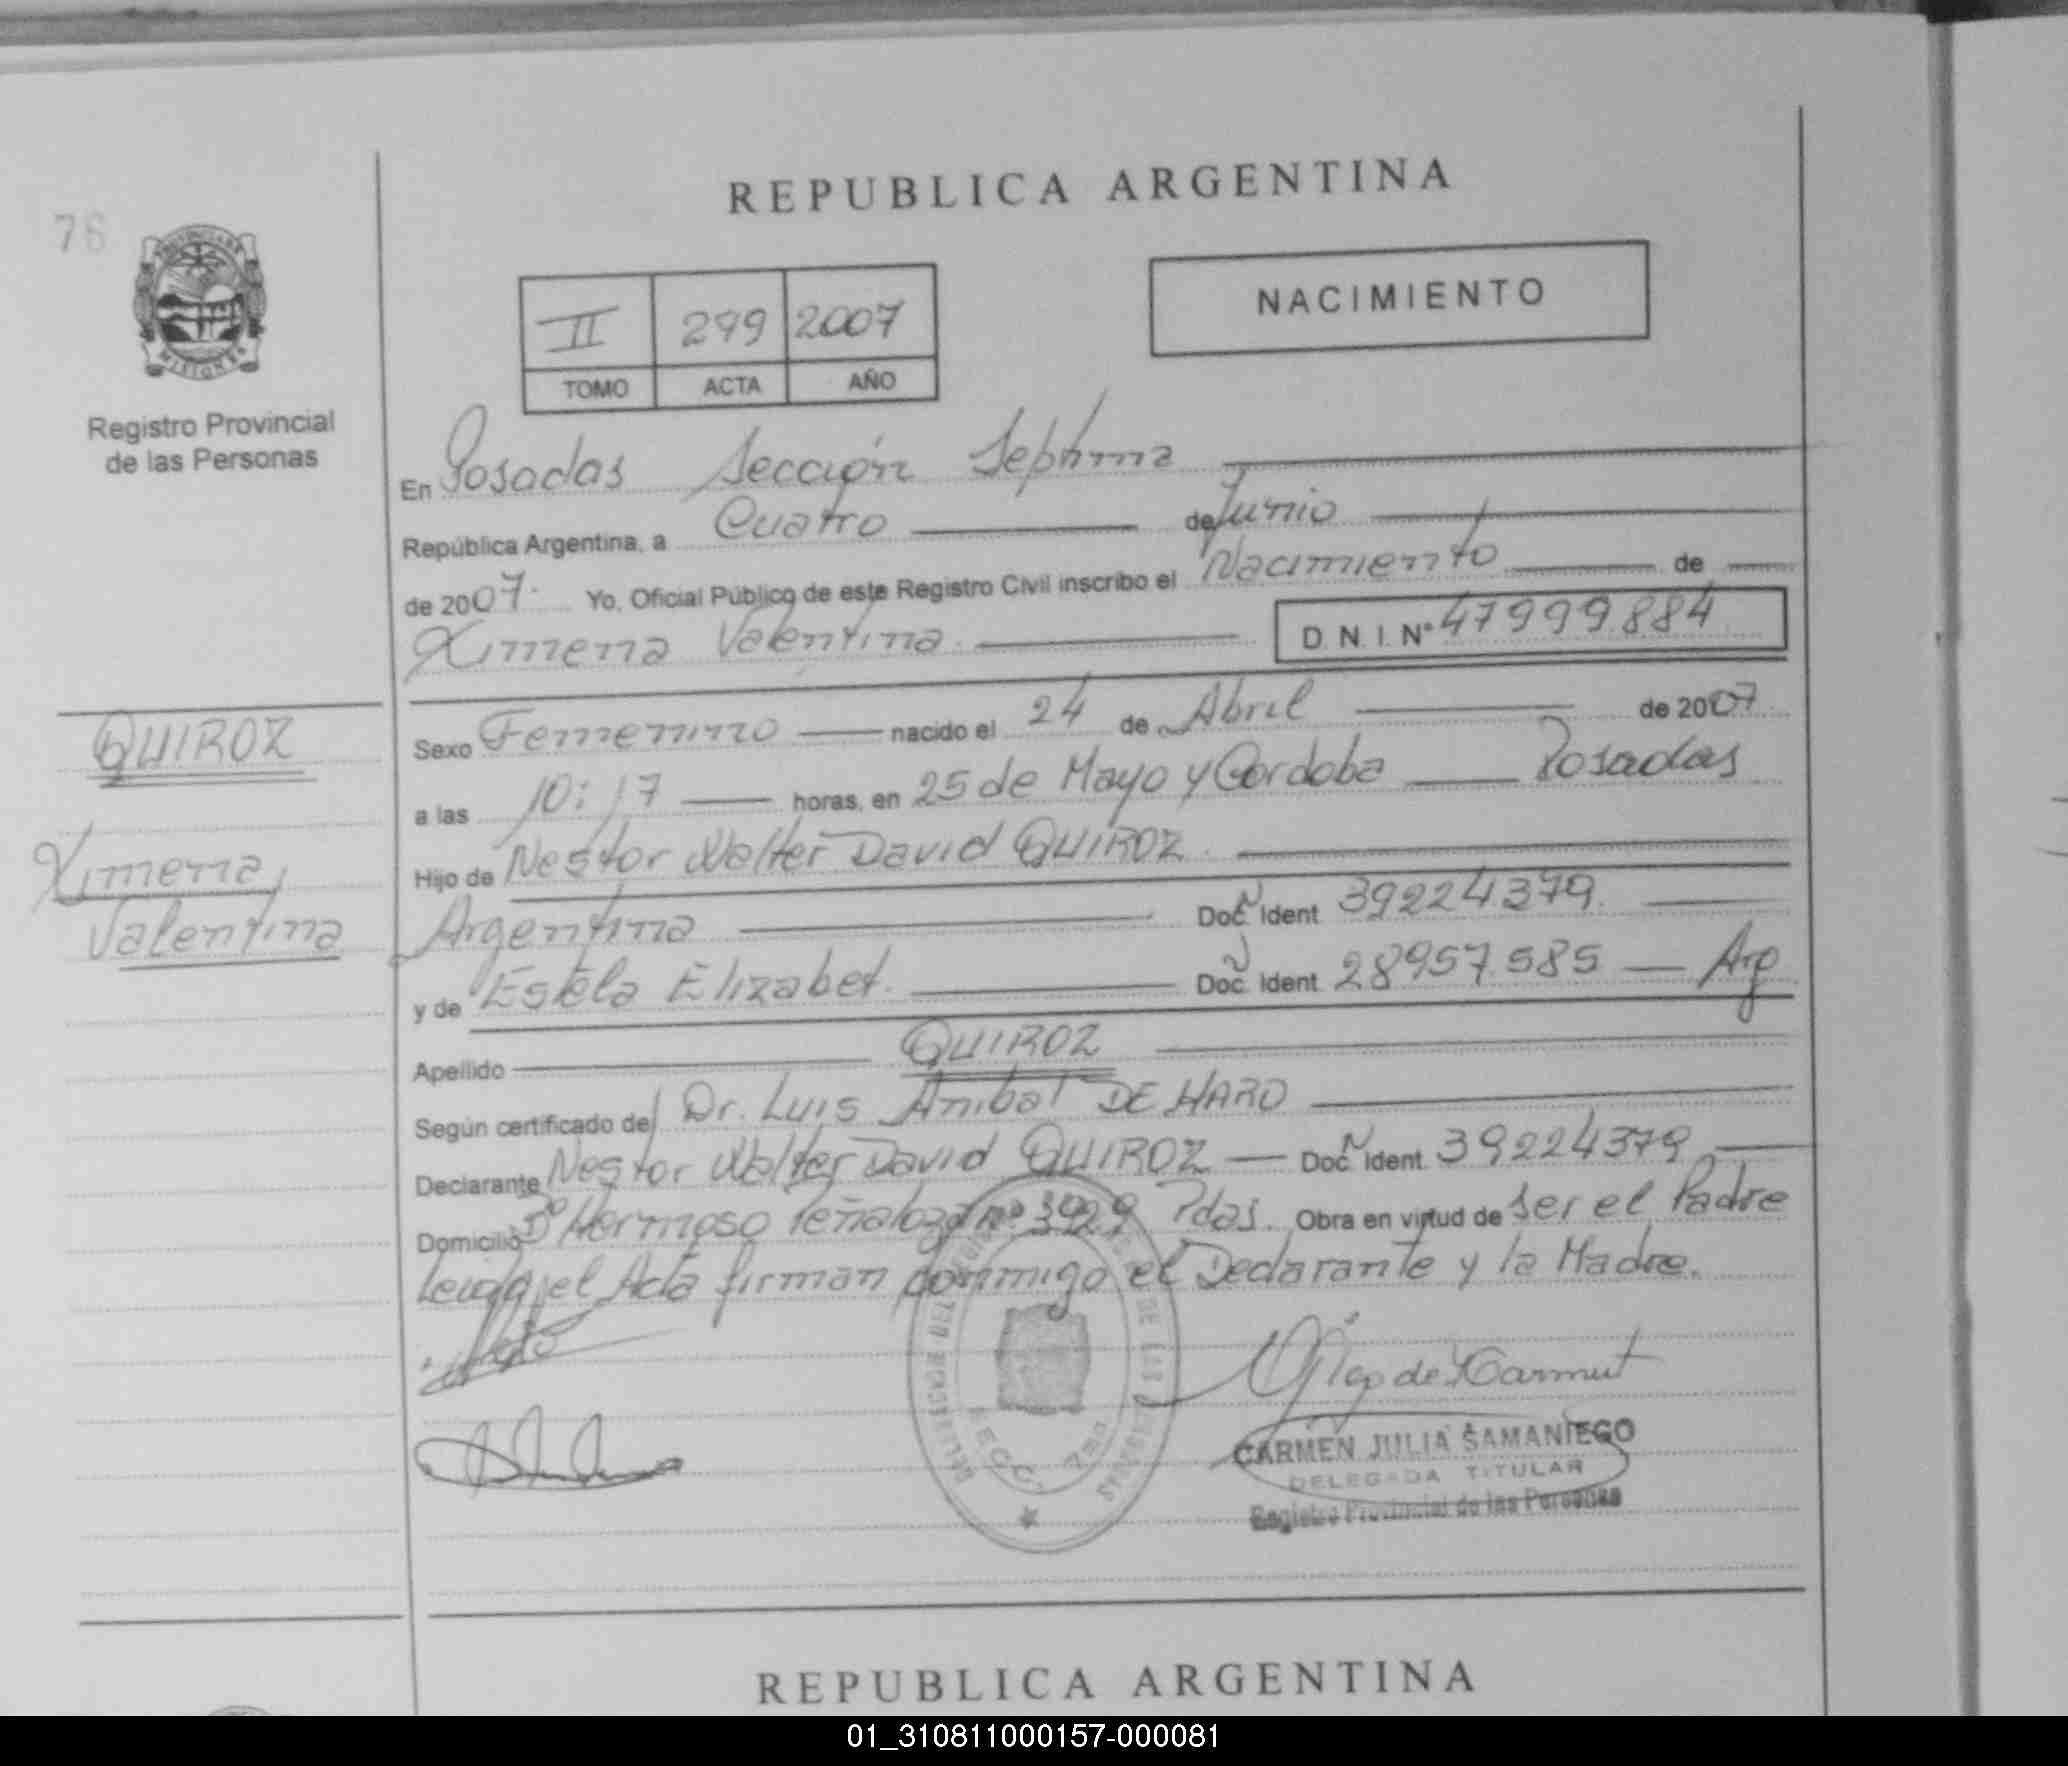 76
REPUBLICA ARGENTINA
II 299 2007
TOMO ACTA AÑO
NACIMIENTO
PROVINCIA DE
MISIONES
Registro Provincial
de las Personas
En Posadas Sección Septima
República Argentina, a Cuatro de Junio
de 2007. Yo, Oficial Público de este Registro Civil inscribo el Nacimiento de
Ximena Valentina. D. N. I. Nº 47999.884
QUIROZ
Ximena
Valentina
Sexo Femenino nacido el 24 de Abril de 2007.
a las 10:17 horas, en 25 de Mayo y Cordoba Posadas
Hijo de Nestor Walter David QUIROZ.
Argentina Doc. Ident 39224379.
y de Estela Elizabet. Doc. Ident 28957.585 Arg
Apellido QUIROZ
Según certificado de Dr. Luis Anibal DE HARO
Declarante Nestor Walter David QUIROZ Doc. Ident. 39224379
Domicilio Bº Hermoso Peñaloza nº 3929 Pdas. Obra en virtud de ser el Padre
Leida el Acta firman conmigo el Declarante y la Madre.
SECC. 7ma
CARMEN JULIA SAMANIEGO
DELEGADA TITULAR
Registro Provincial de las Personas
REPUBLICA ARGENTINA
01_310811000157-000081